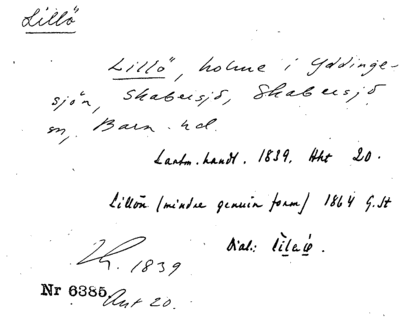 Lillö
Lillö, holme i Yddinge-
sjön, Skabersjö, Skabersjö
sn, Bara hd.
Lantm. handl. 1839. Akt 20.
Lillön (mindre genuin form) 1864 G.St
Dial.:
1839
Nr 6385. Akt 20.